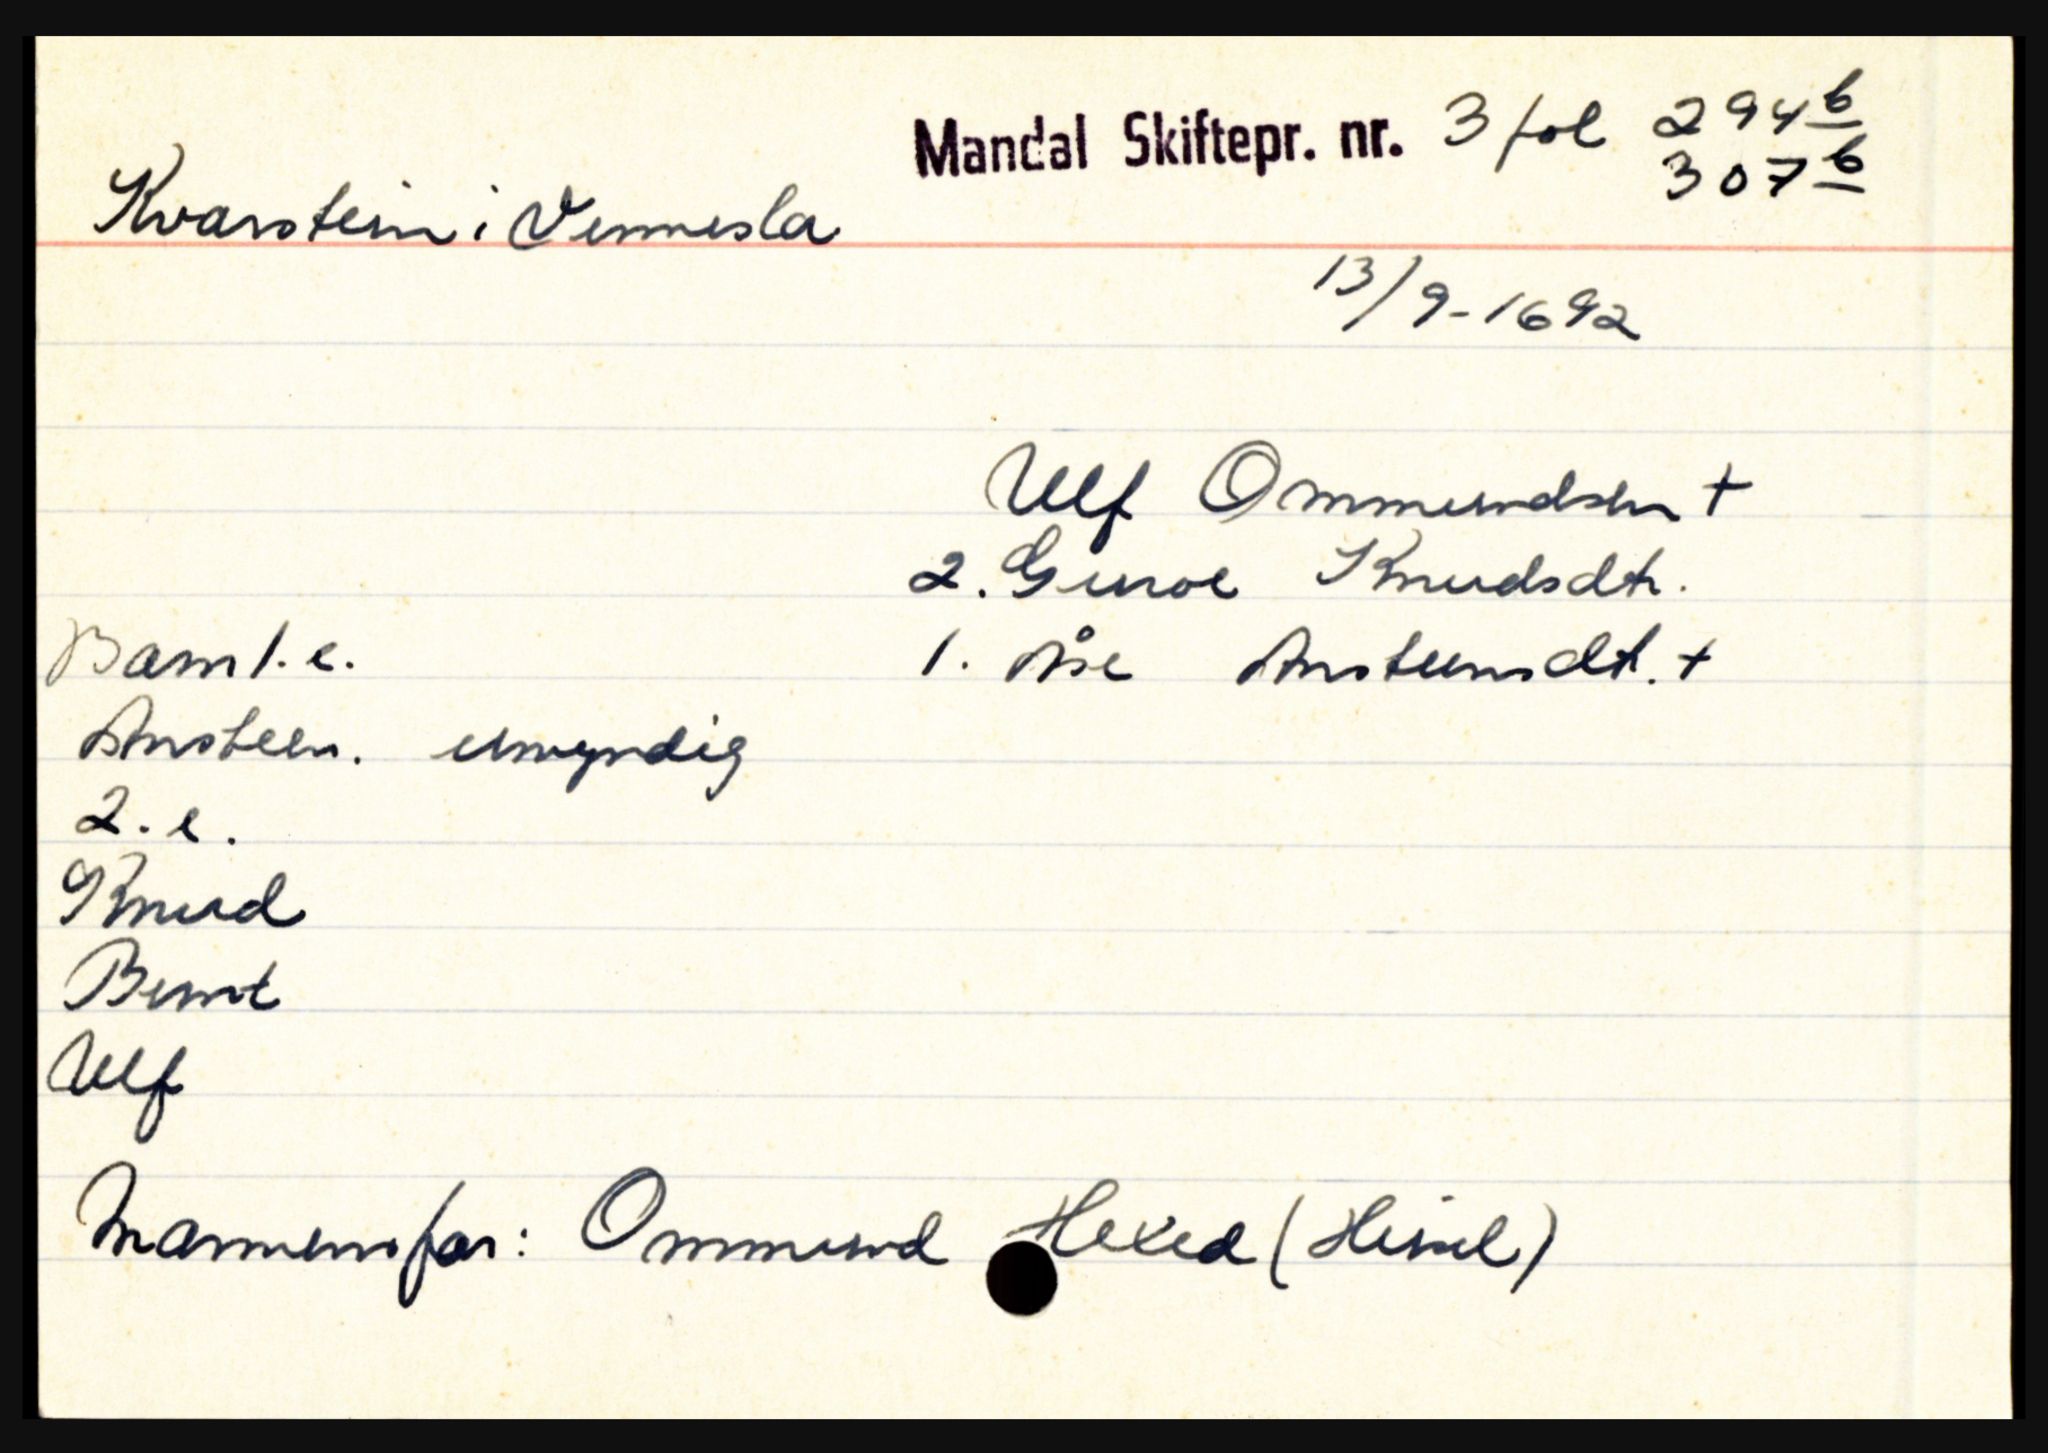 Mandal Skiftepr. nr. 3 fol 294b
307b
Kvarstein i Vennesla
13/9-1692
Ulf Ommundsen +
2. Guroe Knudsdtr.
Barn 1. e.
1. Åse Ansteensdtr. +
Ansteen. umyndig
2. e.
Knud
Bernt
Ulf
Mannens far: Ommund